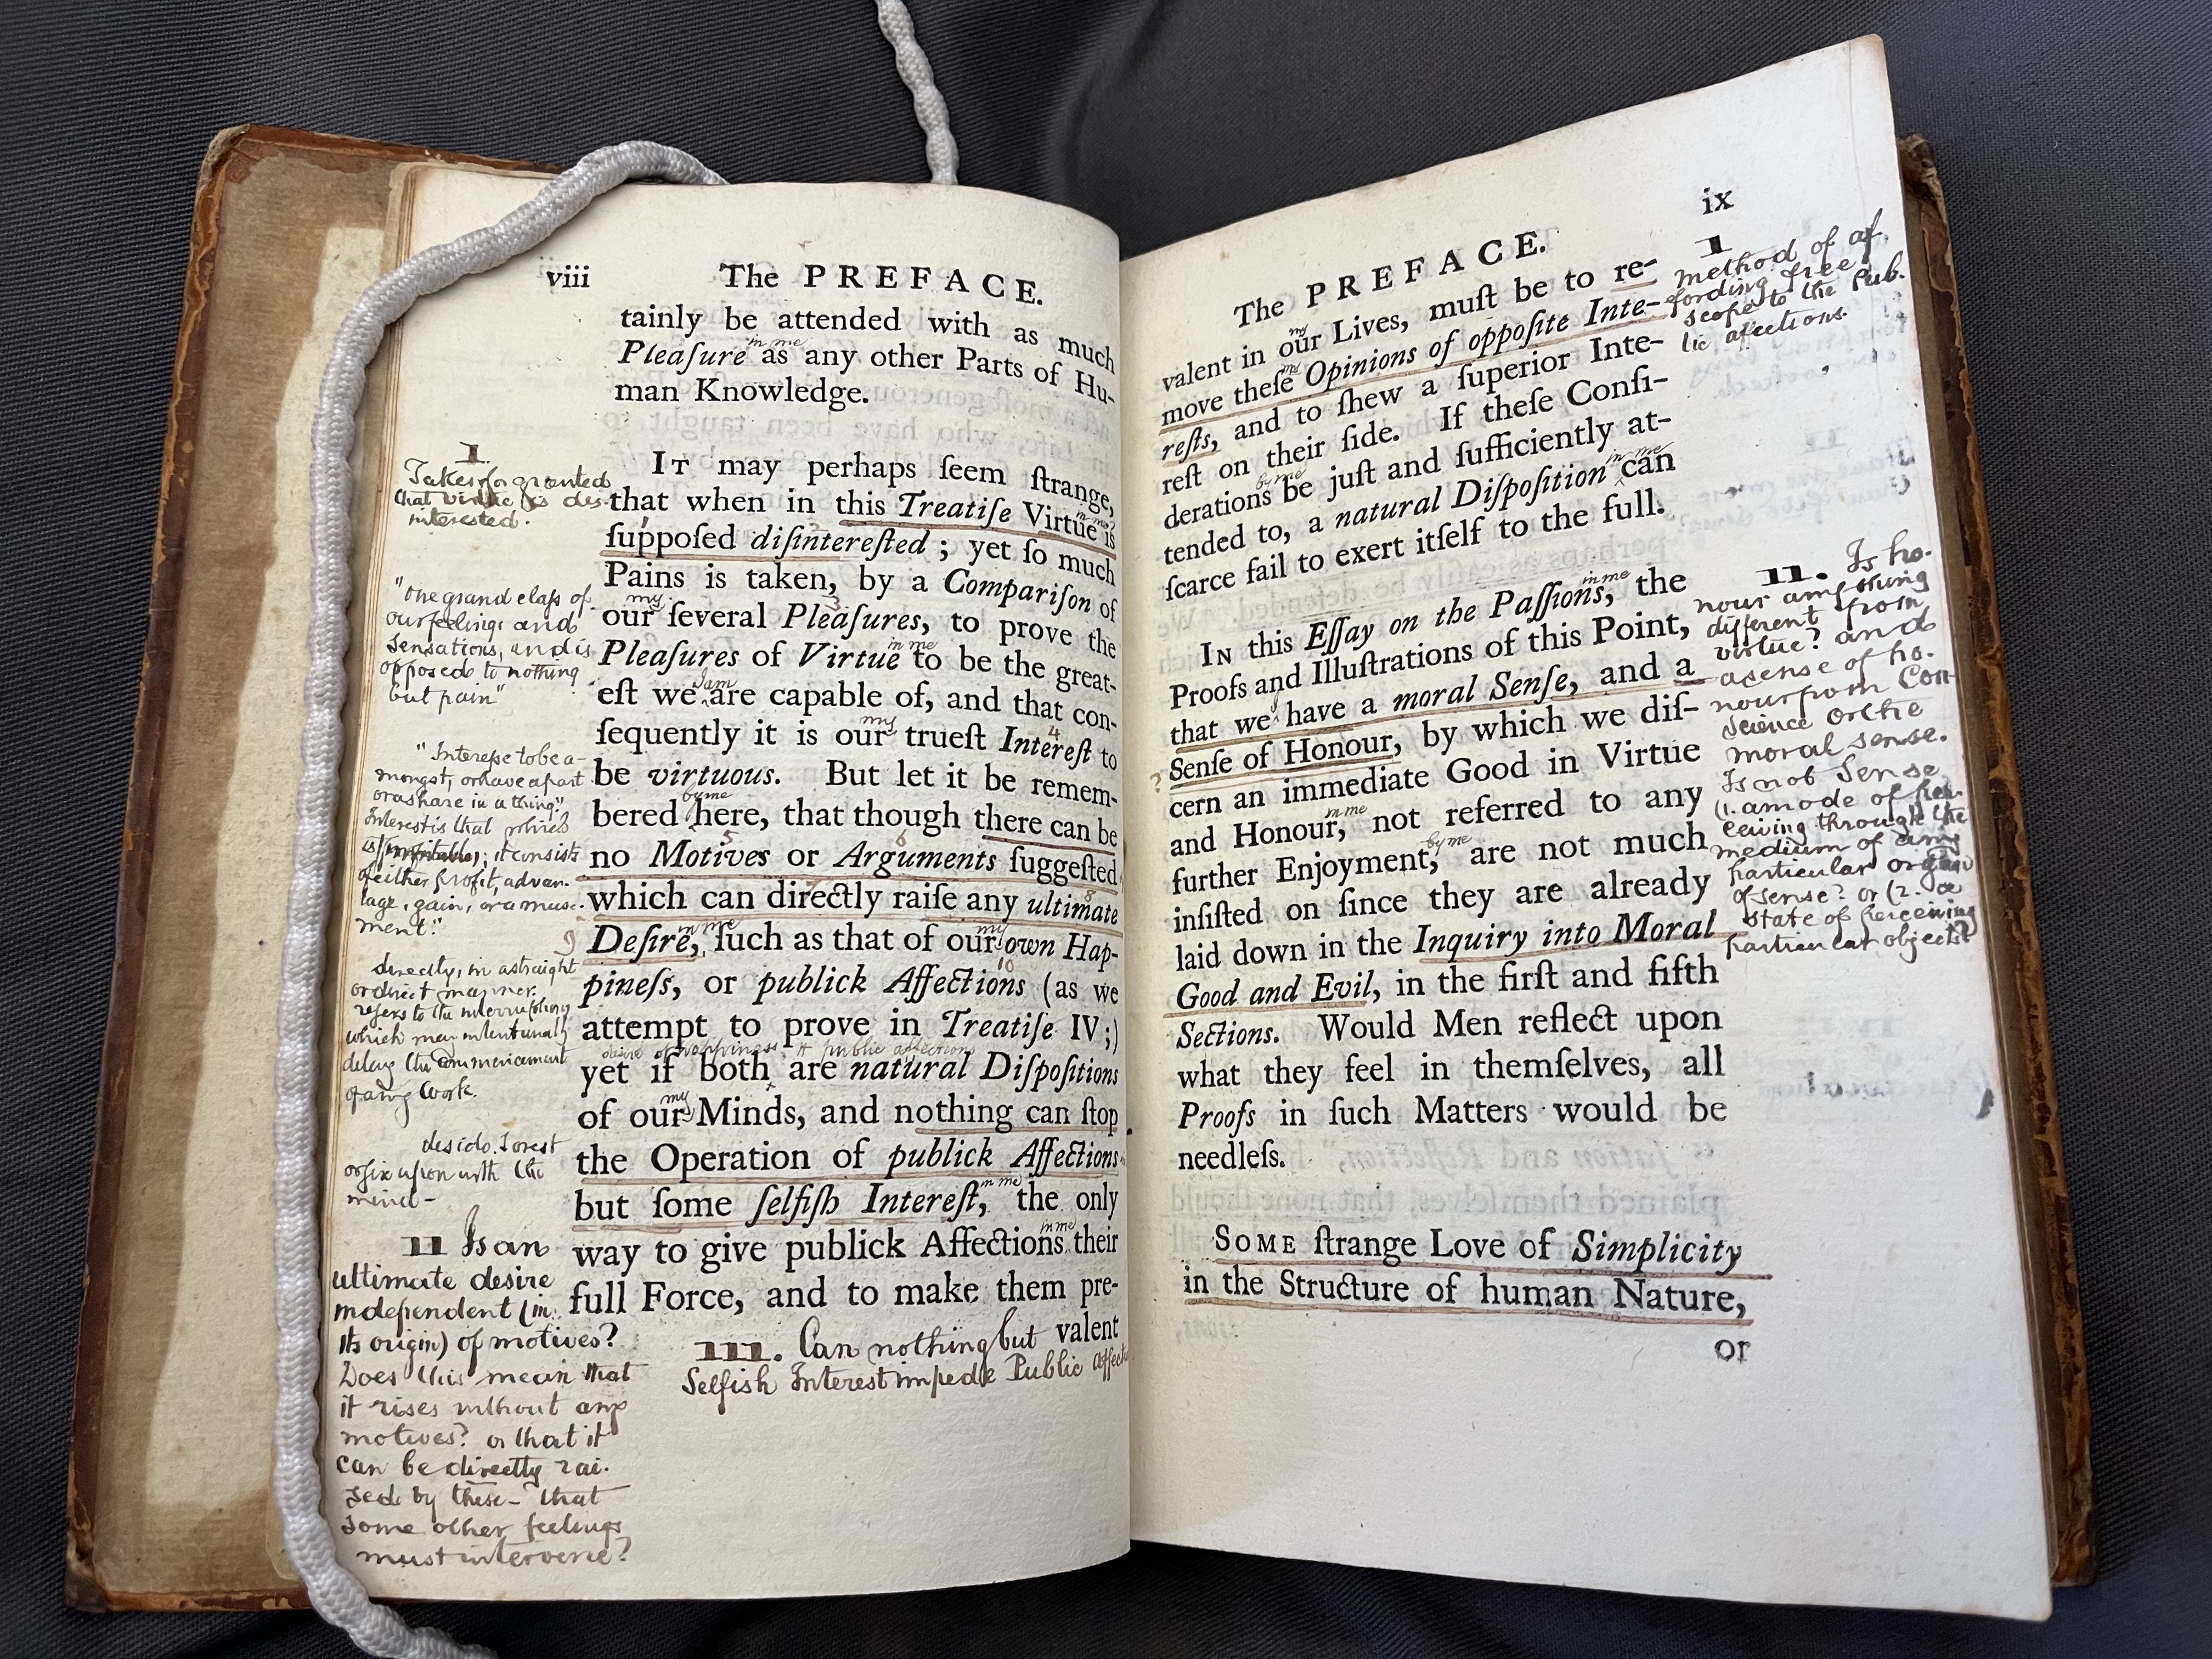 viii
The PREFACE.
tainly be attended with as much
in me
Pleaſure as any other Parts of Hu-
man Knowledge.
I
Takes for granted
that virtue is dis-
interested.
IT may perhaps ſeem ſtrange,
that when in this Treatiſe Virtue is
in me
ſuppoſed diſintereſted ; yet ſo much
Pains is taken, by a Compariſon of
my 3
our ſeveral Pleaſures, to prove the
in me
Pleaſures of Virtue to be the great-
I am
eſt we are capable of, and that con-
my 4
ſequently it is our trueſt Intereſt to
be virtuous. But let it be remem-
by me
bered here, that though there can be
5 6
no Motives or Arguments ſuggeſted
7 8
which can directly raiſe any ultimate
9 in me my
Deſire, ſuch as that of our own Hap-
10
pineſs, or publick Affections (as we
attempt to prove in Treatiſe IV;)
desire of happiness & public affection
yet if both are natural Diſpoſitions
my
of our Minds, and nothing can ſtop
the Operation of publick Affections
in me
but ſome ſelfiſh Intereſt, the only
in me
way to give publick Affections their
full Force, and to make them pre-
valent
"the grand claſs of
our feelings and
sensations, and is
opposed to nothing
but pain"
"Interesse to be a-
mongst, or have a part
or a share in a thing",
Interest is that which
is profitable; it consists
of either profit, advan-
tage, gain, or amuse-
ment."
directly, in a straight
or direct manner.
refers to the interruptions
which may intentionally
delay the commencement
of any work.
desido. I rest
or fix upon with the
mind -
II Is an
ultimate desire
independent (in
its origin) of motives?
Does this mean that
it rises without any
motives? or that it
can be directly rai-
sed by these - that
some other feelings
must intervene?
III. Can nothing but
Selfish Interest impede Public affect
ix
The PREFACE.
my
valent in our Lives, muſt be to re-
my
move theſe Opinions of oppoſite Inte-
reſts, and to ſhew a ſuperior Inte-
reſt on their ſide. If theſe Conſi-
by me
derations be juſt and ſufficiently at-
in me
tended to, a natural Diſpoſition can
ſcarce fail to exert itſelf to the full.
in me
IN this Eſſay on the Paſſions, the
Proofs and Illuſtrations of this Point,
that we have a moral Senſe, and a
? Senſe of Honour, by which we diſ-
cern an immediate Good in Virtue
in me
and Honour, not referred to any
by me
further Enjoyment, are not much
inſiſted on ſince they are already
laid down in the Inquiry into Moral
Good and Evil, in the firſt and fifth
Sections. Would Men reflect upon
what they feel in themſelves, all
Proofs in ſuch Matters would be
needleſs.
SOME ſtrange Love of Simplicity
in the Structure of human Nature,
or
I
method of af
fording free
scope to the Pub.
lic affections.
II. Is ho-
nour any thing
different from
virtue? and
a sense of ho-
nour from Con-
science or the
moral sense.
Is not Sense
(1. a mode of per
ceiving through the
medium of any
particular organ
of sense? or (2. a
state of perceiving
particular objects?